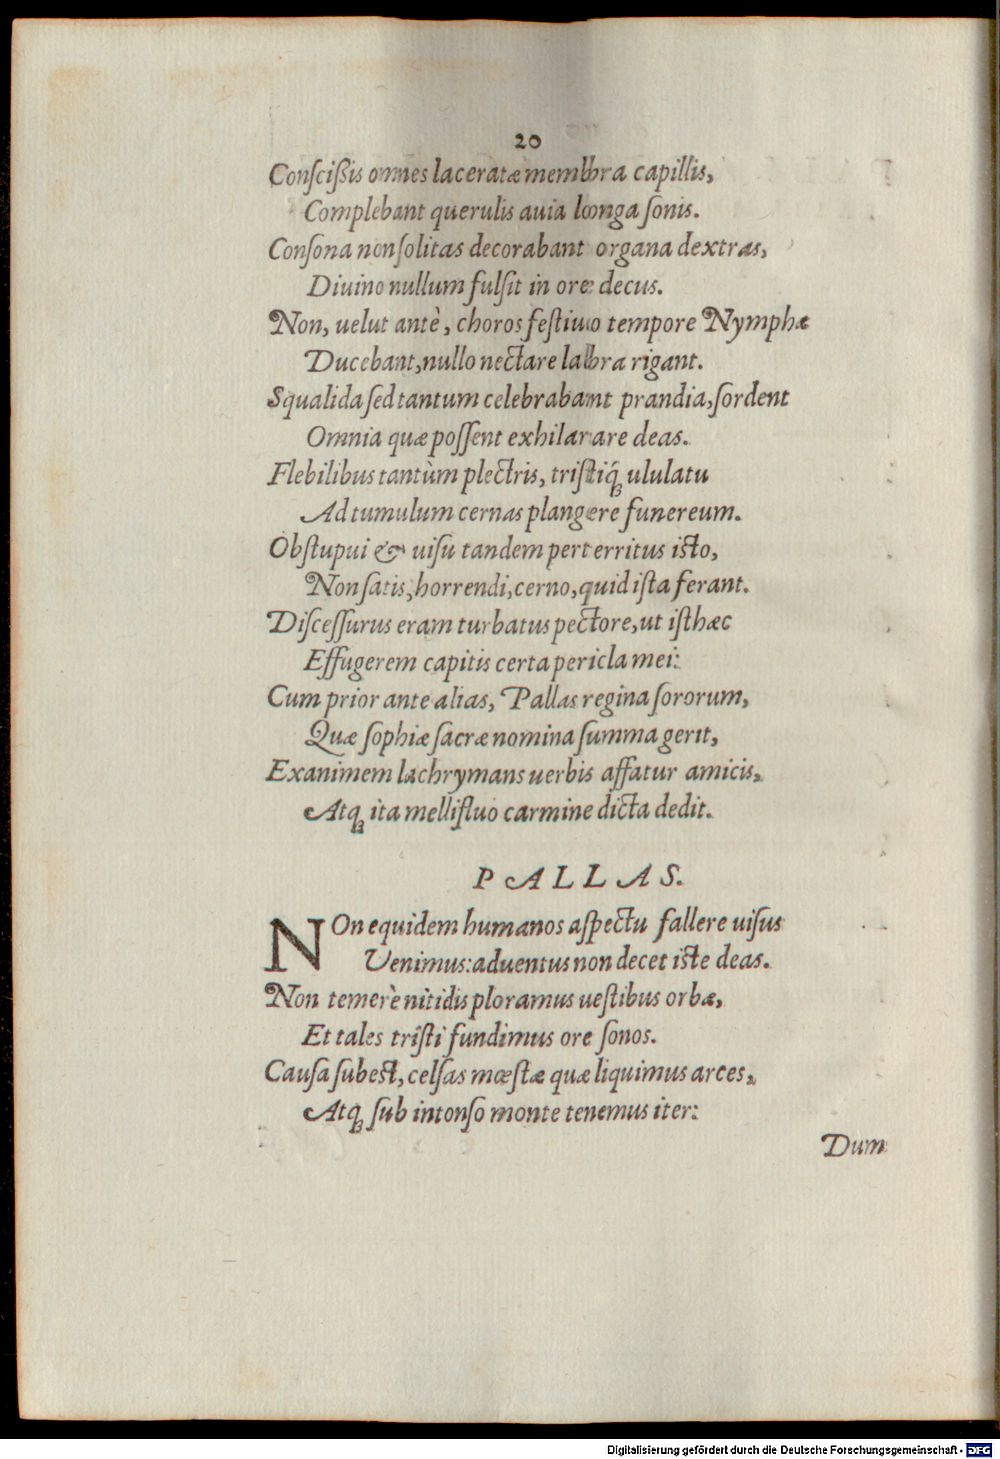 20
Conſcißis omnes laceratæ membra capillis,
Complebant querulis auia longa ſonis.
Conſona non ſolitas decorabant organa dextras,
Diuino nullum fulſit in ore decus.
Non, uelut antè, choros feſtiuo tempore Nymphæ
Ducebant, nullo nectare labra rigant.
Squalida ſed tantum celebrabant prandia, ſordent
Omnia quæ poſſent exhilarare deas.
Flebilibus tantùm plectris, triſtiq́ꝫ ululatu
Ad tumulum cernas plangere funereum.
Obſtupui & uiſu tandem perterritus iſto,
Non ſatis, horrendi, cerno, quid iſta ferant.
Diſceſſurus eram turbatus pectore, ut iſthæc
Effugerem capitis certa pericla mei:
Cum prior ante alias, Pallas regina ſororum,
Quæ ſophiæ ſacræ nomina ſumma gerit,
Exanimem lachrymans uerbis affatur amicis,
Atqꝫ ita mellifluo carmine dicta dedit.
PALLAS.
NOn equidem humanos aſpectu fallere uiſus
Venimus: aduentus non decet iſte deas.
Non temerè nitidis ploramus ueſtibus orbæ,
Et tales triſti fundimus ore ſonos.
Cauſa ſubeſt, celſas mœſtæ quæ liquimus arces,
Atqꝫ ſub intonſo monte tenemus iter:
Dum
Digitalisierung gefördert durch die Deutsche Forschungsgemeinschaft - DFG